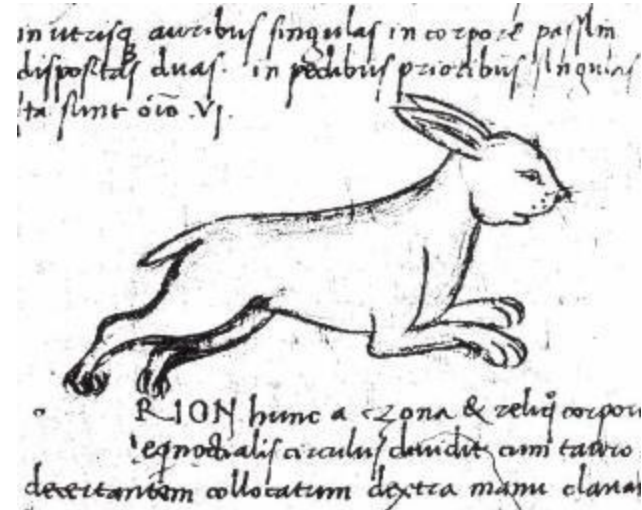 in utrisq auribus singulas in corpore passim
dispositas duas. in pedibus prioribus singulas
ta sunt oio .VI.
o RION hunc a zona & reliq corpor
eqnoctialis circulus dividit cum tauro
decertantem collocatum dextra manu clavam